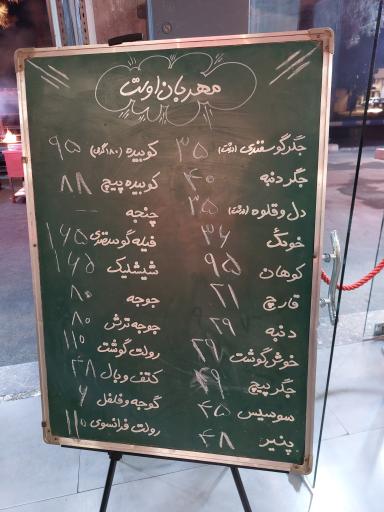 مهربان اوت
جگر گوسفندی (درشت) ۳۵
جگر دنبه ۴۰
دل و قلوه (درشت) ۳۵
خوئک ۳۶
کوهان ۹۵
قارچ ۲۱
دنبه ۲۹
خوش گوشت ۲۹
جگر پیچ ۴۹
سوسیس ۴۵
پنیر ۴۸
کوبیده (۱۸۰گرم) ۹۵
کوبیده پیچ ۸۸
چنجه --
فیله گوسفندی ۱۶۵
شیشلیک ۱۶۵
جوجه ۸۰
جوجه ترش ۸۰
رولت گوشت ۱۱۵
کتف و بال ۴۸
گوجه و فلفل ۶
رولت فرانسوی ۱۱۵